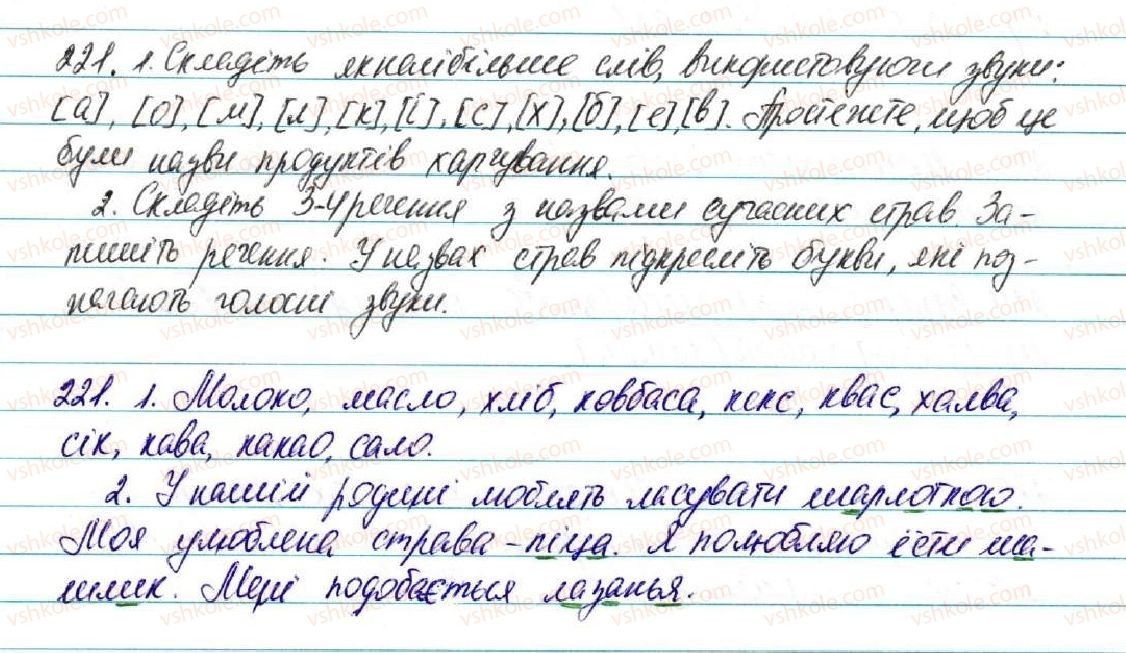 221. 1. Складіть якнайбільше слів, використовуючи звуки:
[а], [о], [м], [л], [к], [і], [с], [х], [б], [е], [в]. Простежте, щоб це
були назви продуктів харчування.
2. Складіть 3-4 речення з назвами сучасних страв. За-
пишіть речення. У назвах страв підкресліть букви, які поз-
начають голосні звуки.
221. 1. Молоко, масло, хліб, ковбаса, кекс, квас, халва,
сік, кава, какао, сало.
2. У нашій родині люблять ласувати шарлоткою.
Моя улюблена страва - піца. Я полюбляю їсти ша-
шлик. Мені подобається лазанья.
vshkole.com